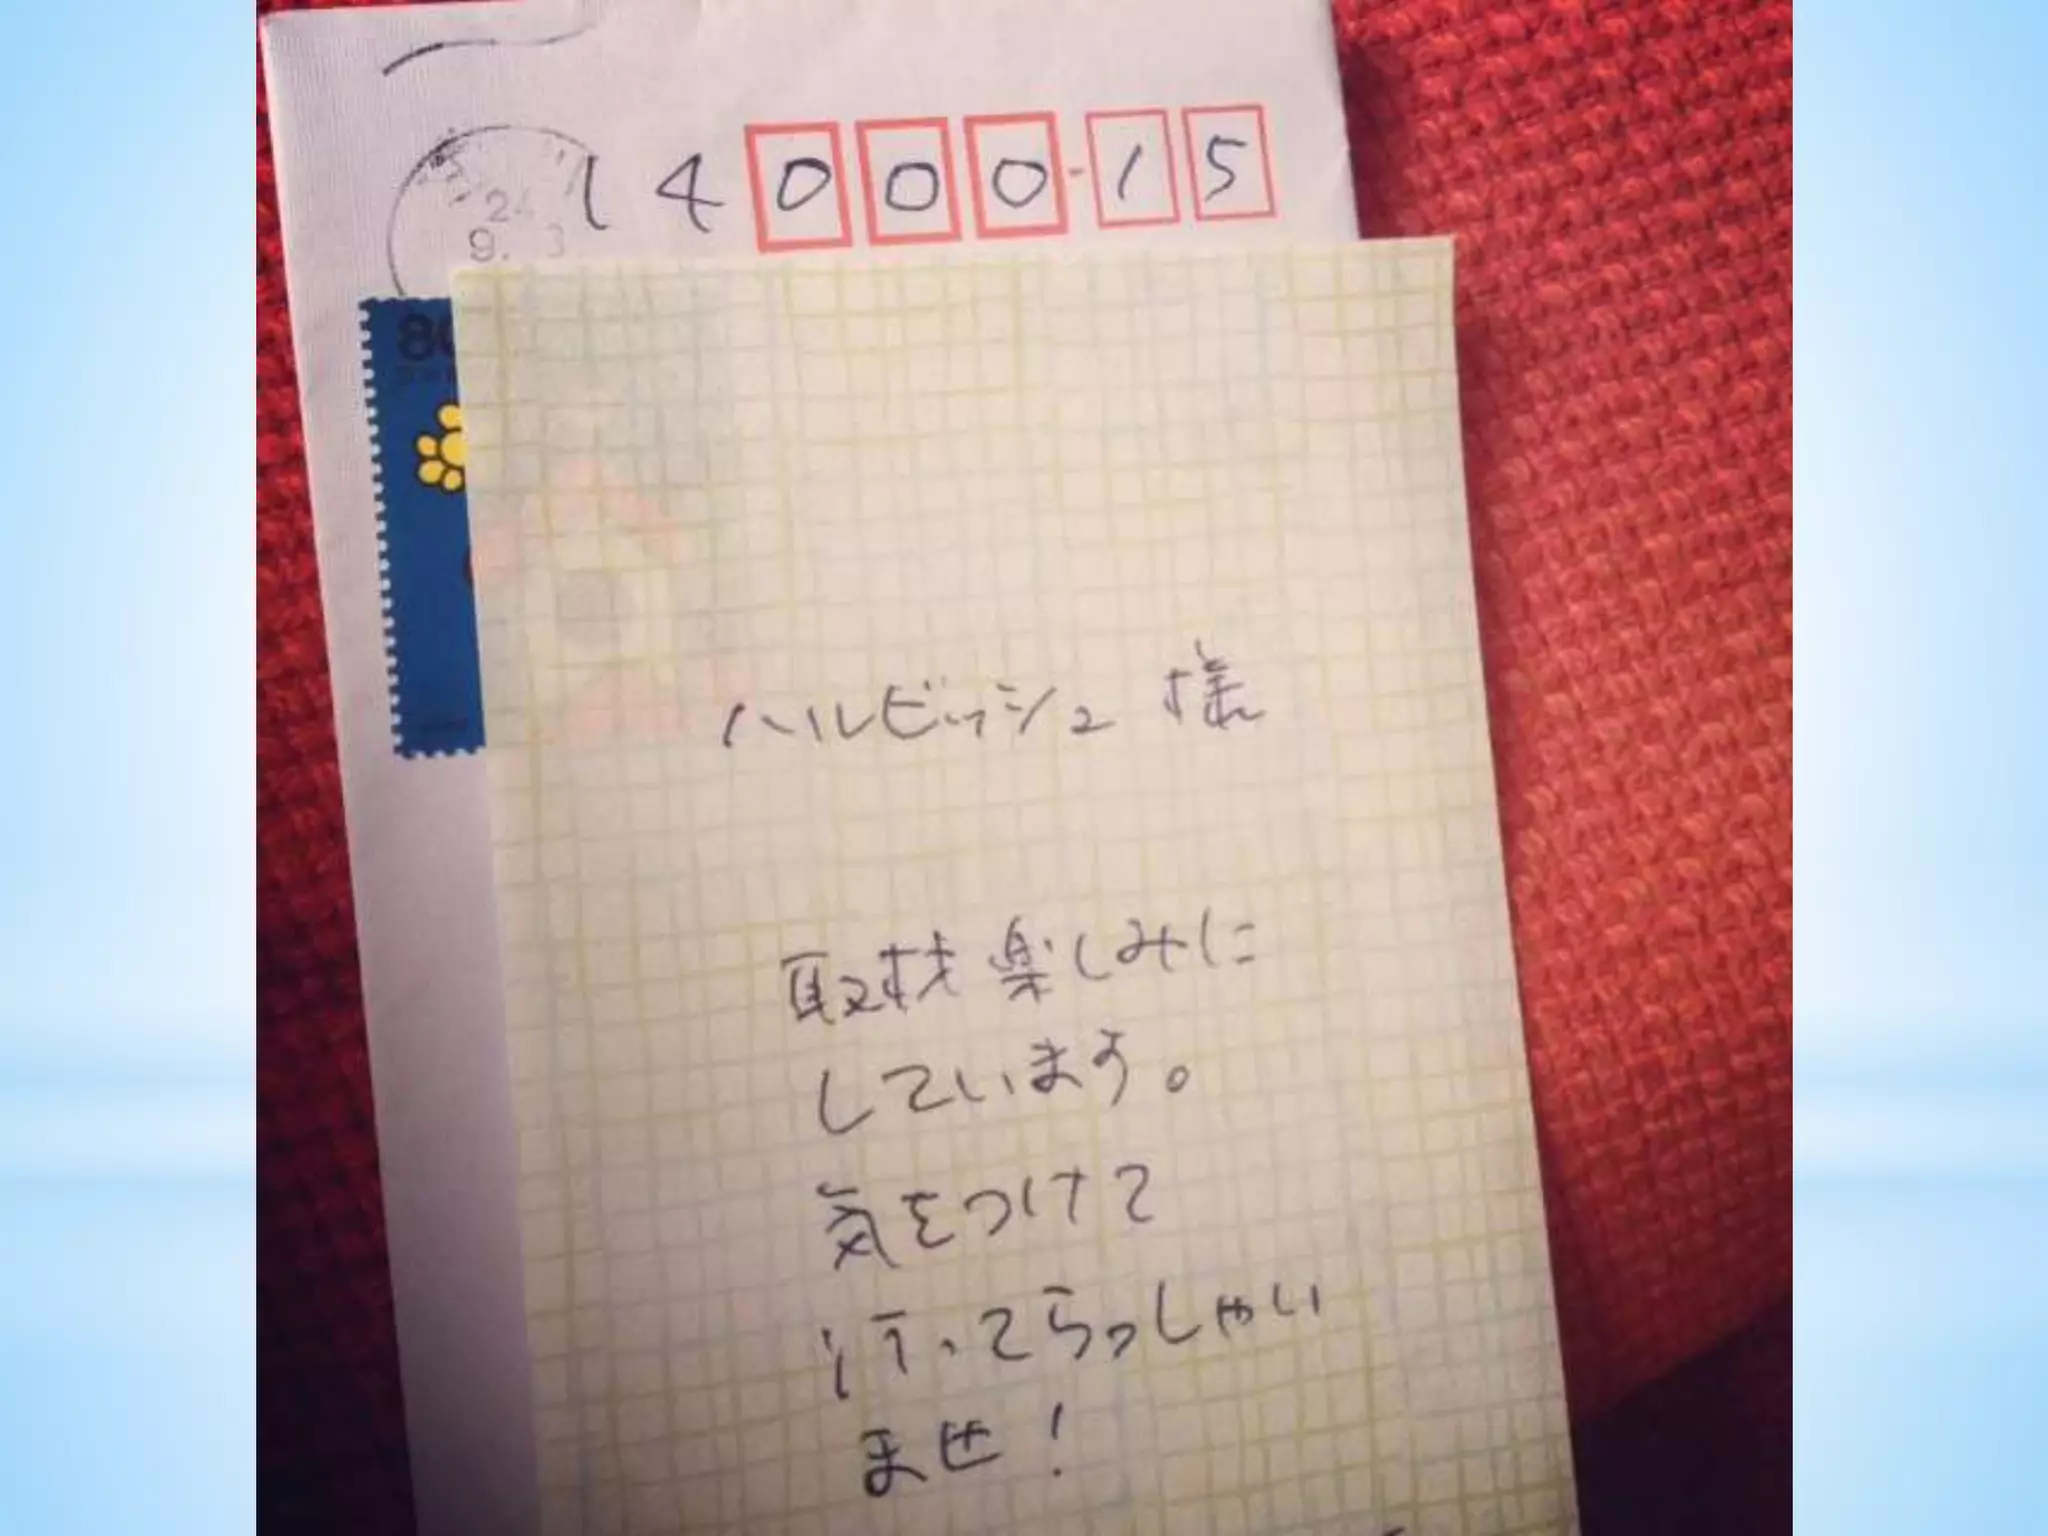 24
9. 3
14000-15
80
ハルビッシュ 様
取材楽しみに
しています。
気をつけて
行ってらっしゃい
ませ!